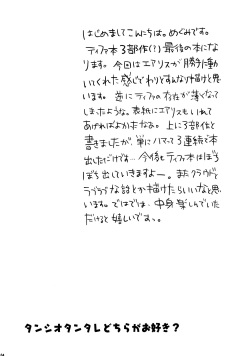 はじめましてこんにちは。めぐみです。
ティファ本3部作(!)最後の本にな
ります。今回はエアリスが勝手に動
いてくれた感じでわりとすんなり描けと思
います。逆にティファの存在が薄くなって
しまったような。表紙にエアリスもいれて
あげればよかったなぁ。上に3部作と
書きましたが、単にハマって3連続で本
出しただけです…今後もティファ本はぼち
ぼち出していきますよー。またクラウドで
ラブラブな話とか描けたらいいなと思
います。ではでは、中身楽しんでいた
だけると嬉しいですっ。
タンシオタンタレどちらがお好き?